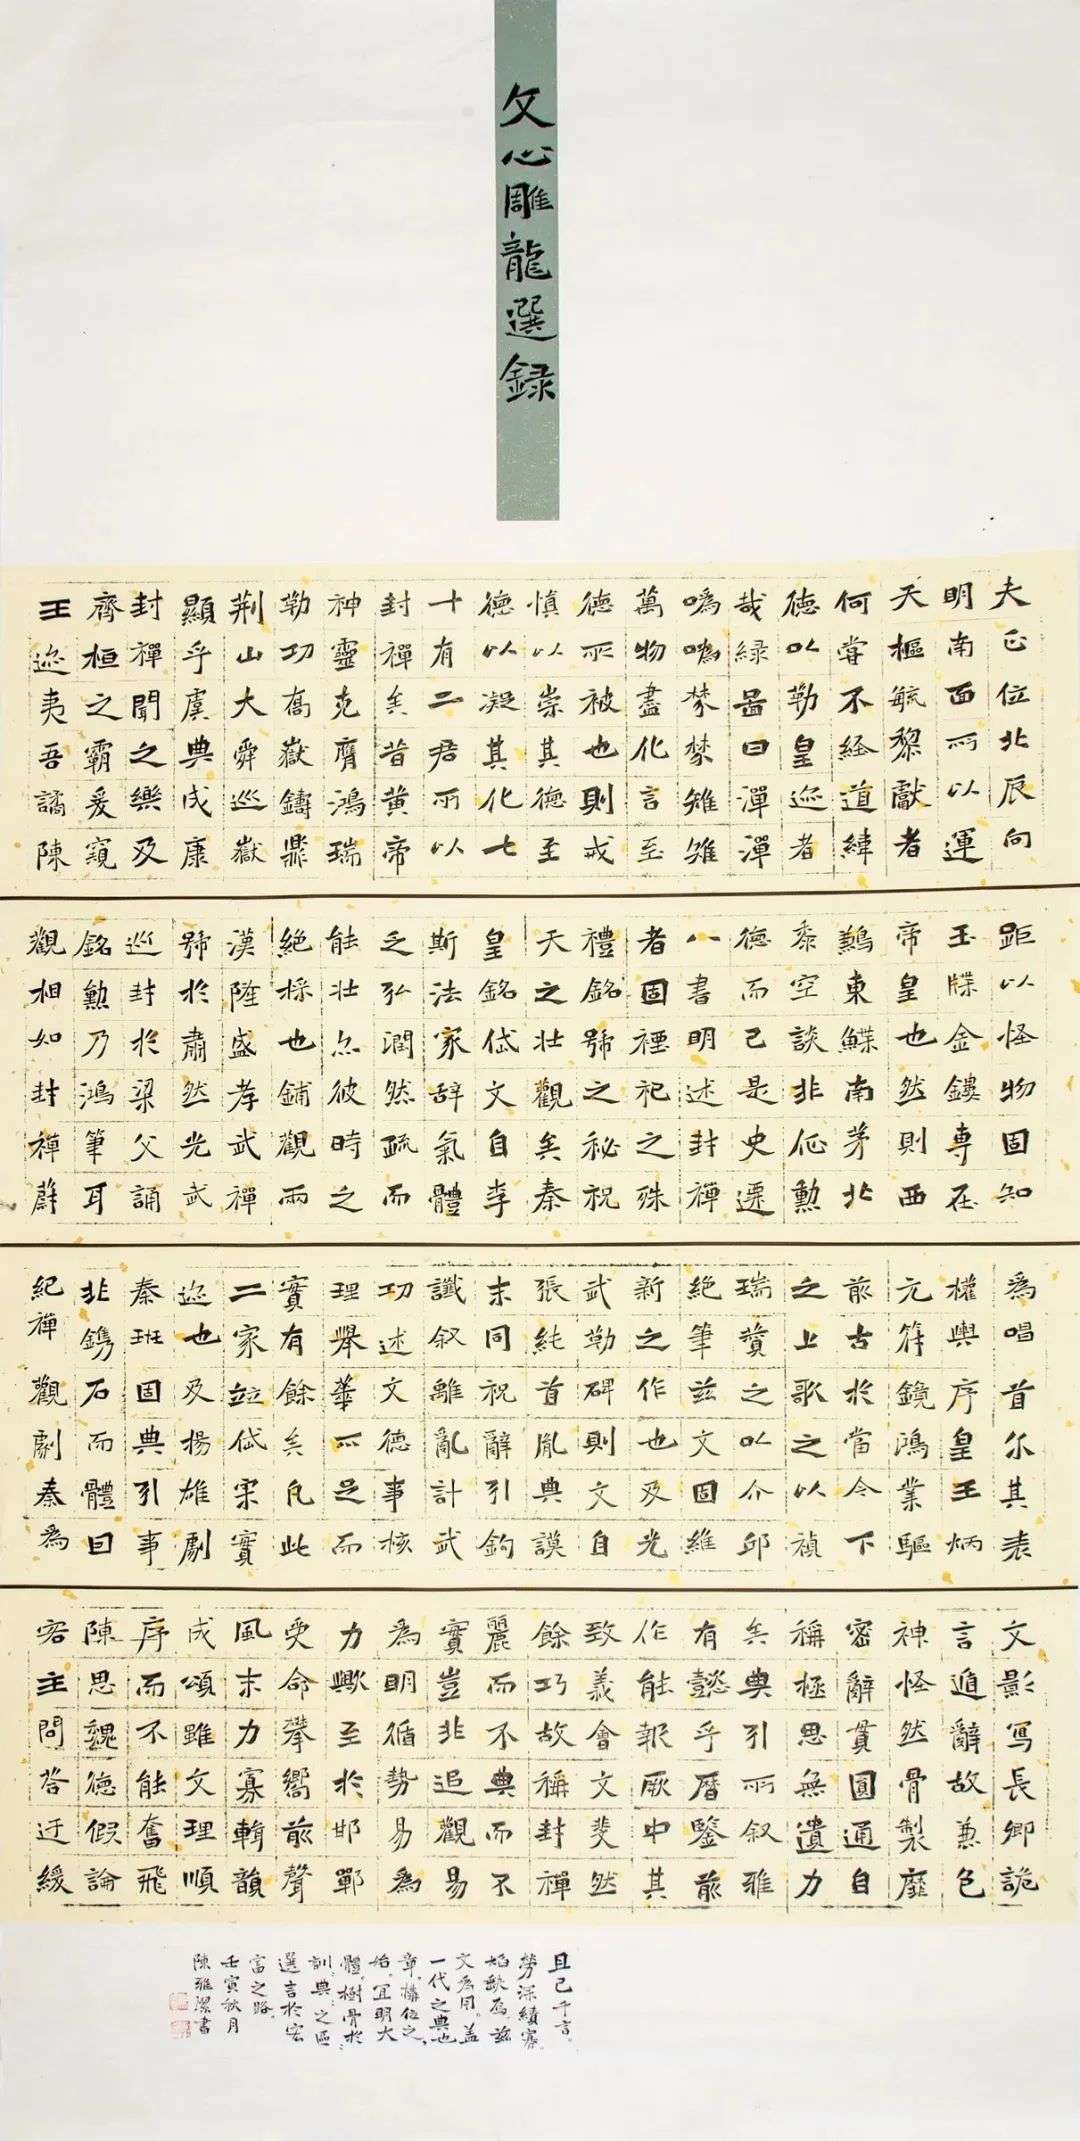 文心雕龍選録
夫正位北辰向
明南面所以運
天樞毓黎獻者
何嘗不經道緯
德以勒皇迹者
哉緑啚曰潬潬
噅噅棼棼雉雉
萬物盡化言至
德所被也則戒
慎以崇其德至
德以凝其化七
十有二君所以
封禪矣昔黃帝
神靈克膺鴻瑞
勒功髙嶽鑄鼎
荆山大舜巡嶽
顯乎虞典成康
封禪聞之樂及
齊桓之霸爰窺
王迹夷吾譎陳
距以怪物固知
玉牒金鏤專在
帝皇也然則西
鶼東鰈南茅北
黍空談非征勲
德而已是史遷
八書明述封禪
者固禋祀之殊
禮銘號之秘祝
天之壯觀矣秦
皇銘岱文自李
斯法家辭氣體
乏弘潤然疏而
能壯亦彼時之
絶採也鋪觀兩
漢隆盛孝武禪
號於肅然光武
巡封於梁父誦
銘勲乃鴻筆耳
觀相如封禪蔚
為唱首尔其表
權輿序皇王炳
元符鏡鴻業驅
前古於當今下
之上歌之以禎
瑞贊之以介邱
絶筆兹文固維
新之作也及光
武勒碑則文自
張純首胤典謨
末同祝辭引鈎
讖叙離亂計武
功述文德事核
理舉華不足而
實有餘矣凡此
二家竝岱宋實
迹也及揚雄劇
秦班固典引事
非鐫石而體因
紀禪觀劇秦為
文影寫長卿詭
言遁辭故兼包
神怪然骨製靡
密辭貫圓通自
稱極思無遺力
矣典引所叙雅
有懿乎歷鑒前
作能報厥中其
致義會文斐然
餘巧故稱封禪
麗而不典而不
實豈非追觀易
為明循勢易為
力歟至於邯鄲
受命攀嚮前聲
風末力寡輯韻
成頌雖文理順
序而不能奮飛
陳思魏德假論
客主問答迂緩
且已千言。
勞深績寡。
焰缺焉。兹
文為用。蓋
一代之典也
章。構位之
始。宜明大
體。樹骨於
訓典之區
選言於宏
富之路。
壬寅秋月
陳雅潔書